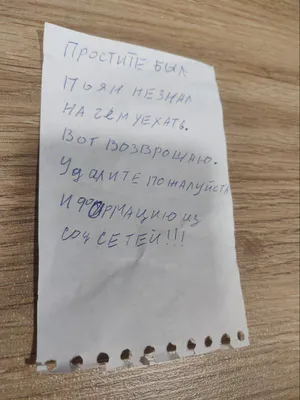 Простите был
пьян незнал
на чём уехать.
Вот возврощаю.
Удалите пожалуйста
информацию из
соц сетей!!!